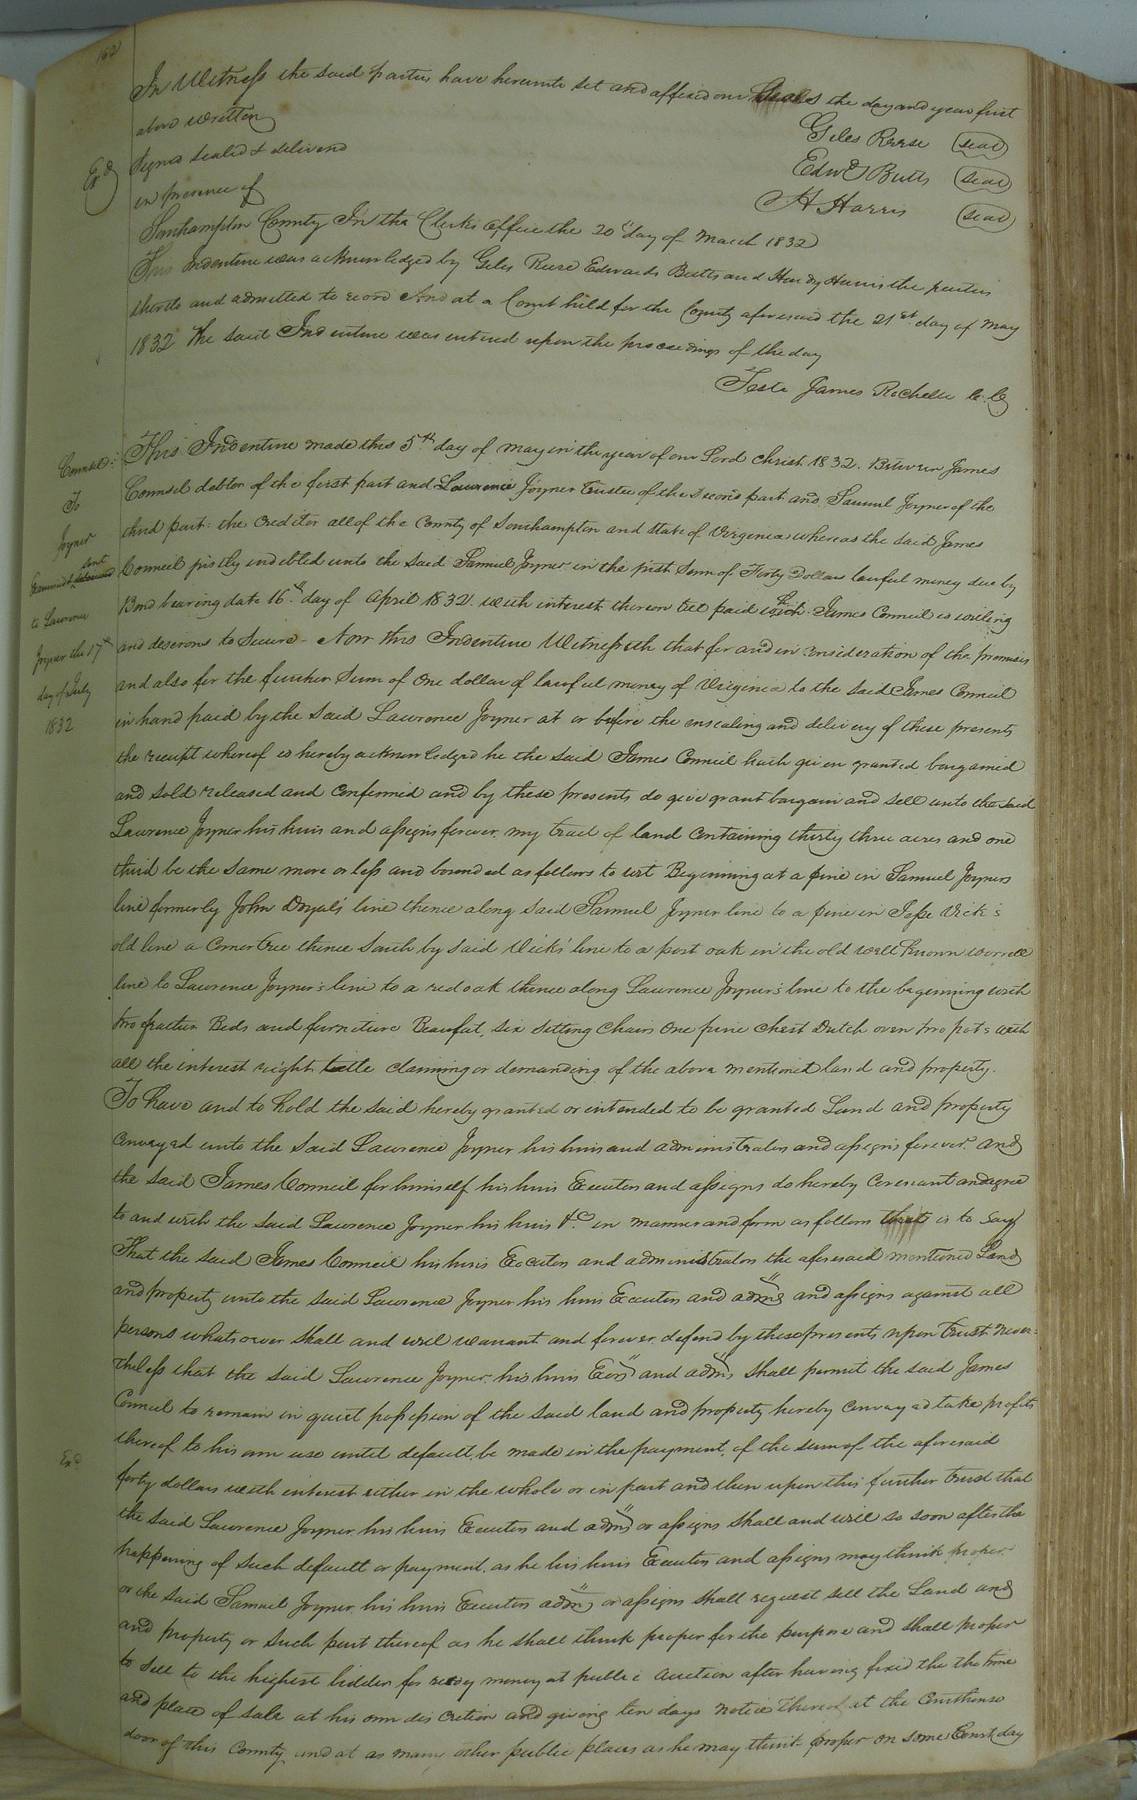 162
In Witness the said parties have hereunto set and affixed our Seals the day and year first
above written
Signed sealed & delivered
in presence of
Giles Reese (seal)
Edwd Butts (seal)
H Harris (seal)
Exd
Southampton County In the Clerks office the 20th day of March 1832
This Indenture was acknowledged by Giles Reese Edwards Butts and Hardy Harris the parties
thereto and admitted to record And at a Court held for the County aforesaid the 21st day of May
1832 The said Indenture was entered upon the proceedings of the day
Teste James Rochelle C.C
Council
To
Joyner
Examined & sent
to Lawrence
Joyner the 17th
day of July
1832
This Indenture made this 5th day of May in the year of our Lord Christ 1832. Between James
Council debtor of the first part and Lawrence Joyner trustee of the second part and Samuel Joyner of the
third part: the creditor all of the County of Southampton and state of Virginia whereas the said James
Council justly indebted unto the said Samuel Joyner in the just Sum of Forty Dollars lawful money due by
Bond bearing date 16th day of April 1832. with interest thereon till paid which James Council is willing
and deserous to secure - Now this Indenture Witnesseth that for and in consideration of the premises
and also for the further Sum of one dollar of lawful money of Virginia to the said James Council
in hand paid by the said Lawrence Joyner at or before the ensealing and delivery of these presents
the receipt whereof is hereby acknowledged he the said James Council hath given granted bargained
and sold released and confirmed and by these presents do give grant bargain and sell unto the said
Lawrence Joyner his heirs and assigns forever. my tract of land containing thirty three acres and one
third be the same more or less and bounded as follows to wit Beginning at a pine in Samuel Joyners
line formerly John line thence along said Samuel Joyner line to a pine in Jesse Vick's
old line a Corner tree thence South by said Vicks' line to a post oak in the old well known Worrell
line to Lawrence Joyner's line to a red oak thence along Lawrence Joyner's line to the beginning with
two feather Beds and furniture Beaufat, six setting chairs one pine chest Dutch oven two pots with
all the interest right title claiming or demanding of the above mentioned land and property.
To have and to hold the said hereby granted or intended to be granted Land and property
conveyed unto the said Lawrence Joyner his heirs and administrators and assigns forever and
the said James Council for himself his heirs Executors and assigns do hereby Covenant and agree
to and with the said Lawrence Joyner his heirs &c in manner and form as follows that is to say
That the said James Council his heirs Executors and administrators the aforesaid mentioned Land
and property unto the said Lawrence Joyner his heirs Executors and admrs and assigns against all
persons whatsoever shall and will warrant and forever defend by these presents upon trust never=
theless that the said Lawrence Joyner his heirs Exrs and admrs shall permit the said James
Council to remain in quiet possession of the said land and property hereby conveyed take profits
thereof to his own use until default be made in the payment of the sum of the aforesaid
Exd
forty dollars with interest either in the whole or in part and then upon this further trust that
the said Lawrence Joyner his heirs Executors and admrs or assigns shall and will so soon after the
happening of such default or payment as he his heirs Executors and assigns may think proper
or the said Samuel Joyner his heirs Executors admrs or assigns shall request sell the Land and
and property or such part thereof as he shall think proper for the purpose and shall proper
to sell to the highest bidder for ready money at public auction after having fixed the the time
and place of sale at his own discretion and giving ten days notice thereof at the Courthouse
door of this County and at as many other public places as he may think proper on some Court day